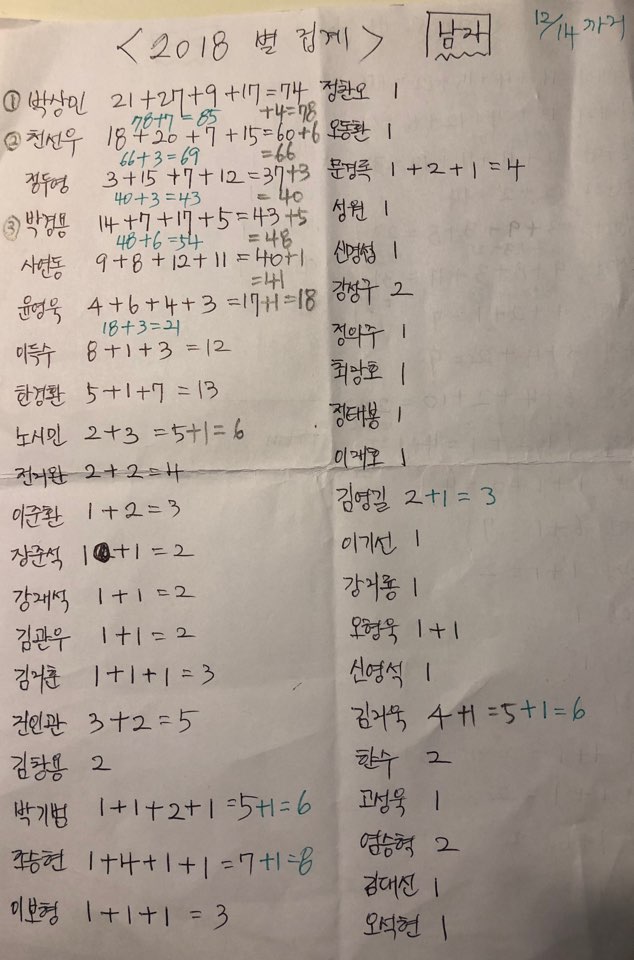 <2018 별 집계> 남자 12/14 까지
① 박상민 21+27+9+17=74
+4=78
78+7=85
② 천선우 18+20+7+15=60+6
=66
66+3=69
정두영 3+15+7+12=37+3
=40
40+3=43
③ 박경용 14+7+17+5=43+5
=48
48+6=54
사현동 9+8+12+11=40+1
=41
윤영욱 4+6+4+3=17+1=18
18+3=21
이득수 8+1+3=12
한경환 5+1+7=13
노시민 2+3=5+1=6
전지완 2+2=4
이준환 1+2=3
장준석 1+1=2
강재석 1+1=2
김관우 1+1=2
김지훈 1+1+1=3
전인관 3+2=5
김창용 2
박기범 1+1+2+1=5+1=6
조승현 1+4+1+1=7+1=8
이보형 1+1+1=3
정찬오 1
오동환 1
문경록 1+2+1=4
성원 1
신명섭 1
강성구 2
정의주 1
최망호 1
정태봉 1
이재호 1
김영길 2+1=3
이기선 1
강지룡 1
오형욱 1+1
신영석 1
김지욱 4+1=5+1=6
한수 2
고성욱 1
염승혁 2
김대선 1
오석현 1